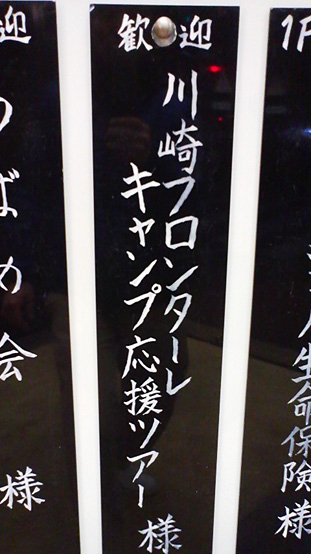 1F
生命保険様
歓迎
川崎フロンターレ
キャンプ応援ツアー様
迎
つばめ会様